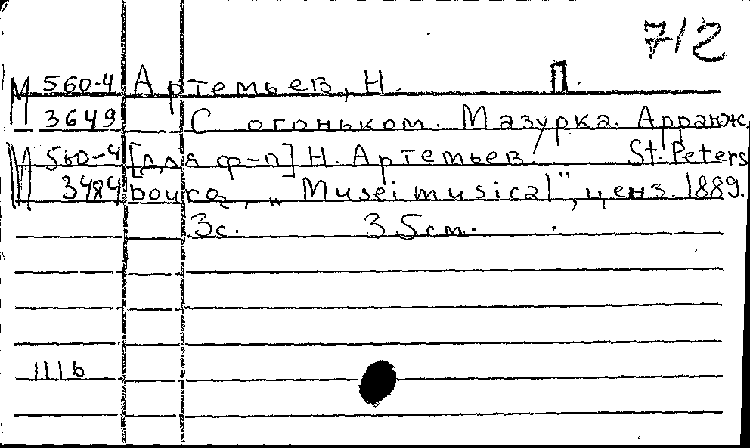 7/2
М 560-4 Артемьев, Н. П.
3649 С огоньком. Мазурка. Арранж.
М 560-4 [для ф-п] Н. Артемьев. St. Peters
3484 bourg, „Musei musical", ценз. 1889.
3с. 35см.
1116